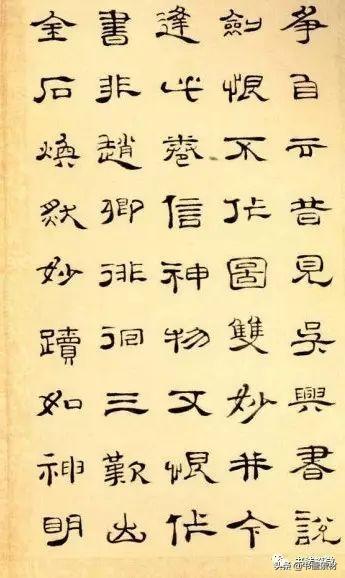 爭自云昔見吳興書說
劍恨不作圖雙妙并今
逢此卷信神物又恨作
書非趙卿徘徊三歎出
金石煥然妙蹟如神明
头条 @书画素材